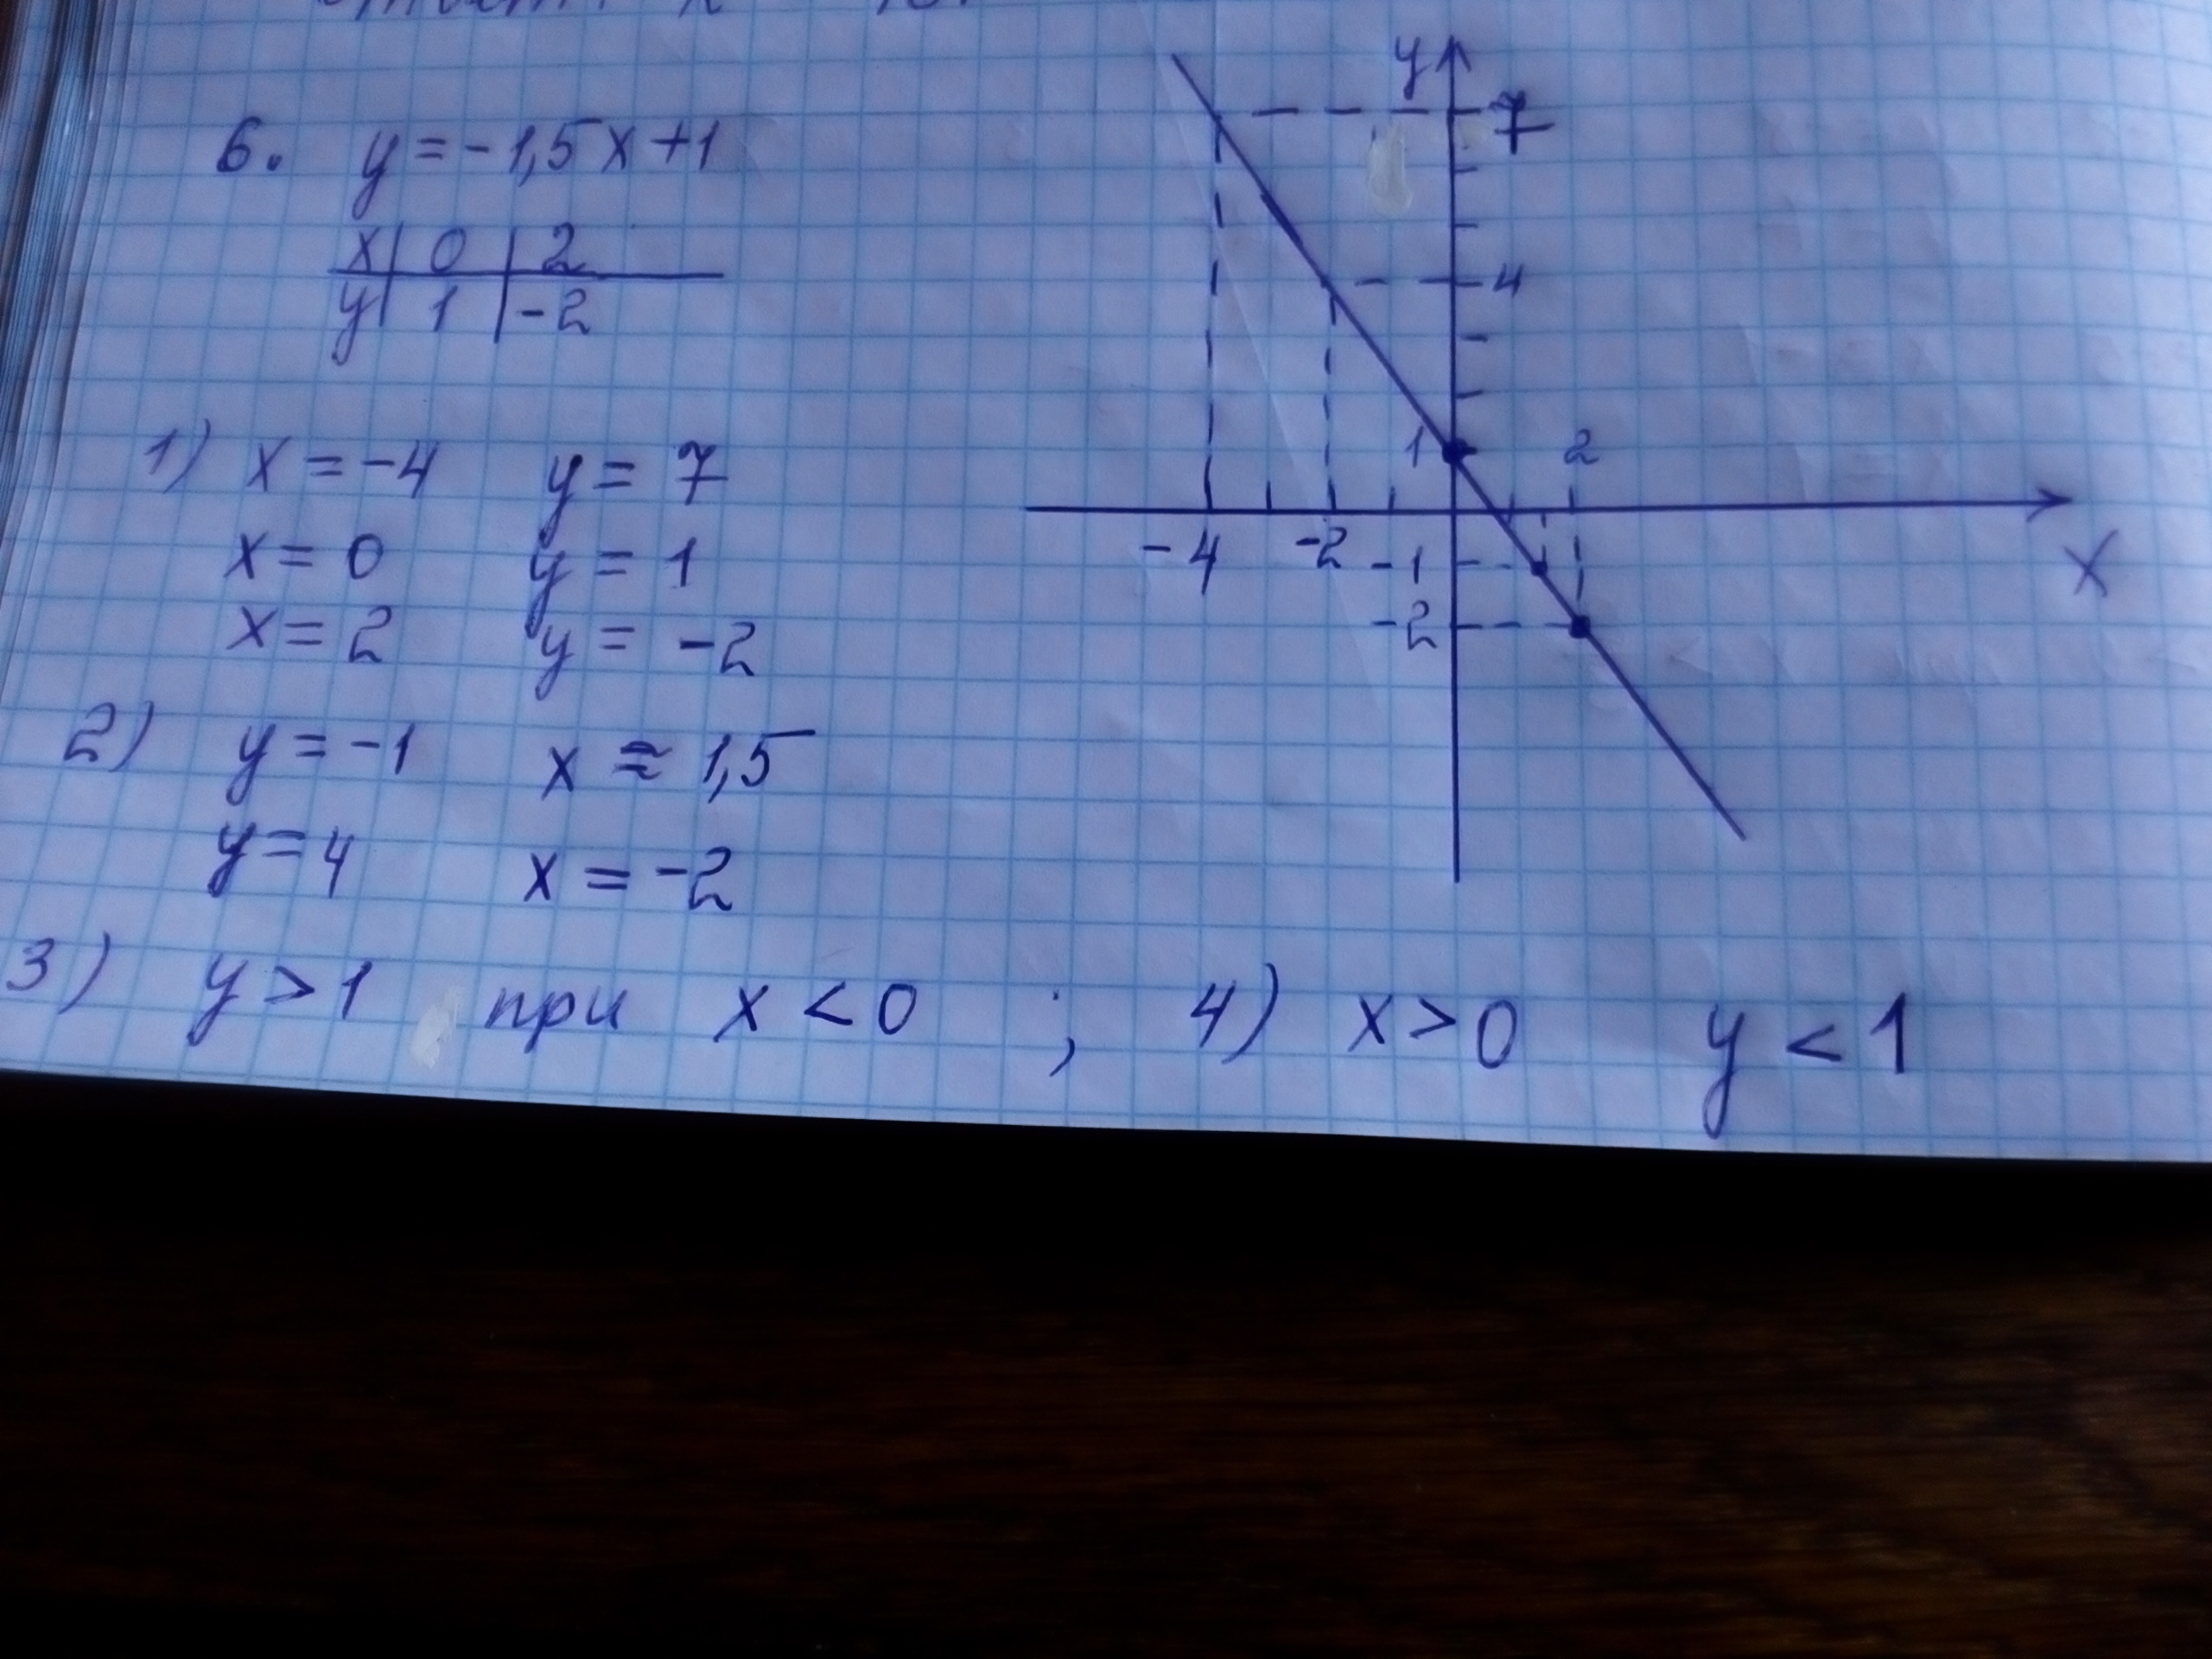 6. y = -1,5x + 1
x | 0 | 2
y | 1 | -2
1) x = -4 y = 7
x = 0 y = 1
x = 2 y = -2
2) y = -1 x ≈ 1,5
y = 4 x = -2
3) y > 1 при x < 0 ; 4) x > 0 y < 1
y
7
4
1 2
-4 -2 -1 x
-2